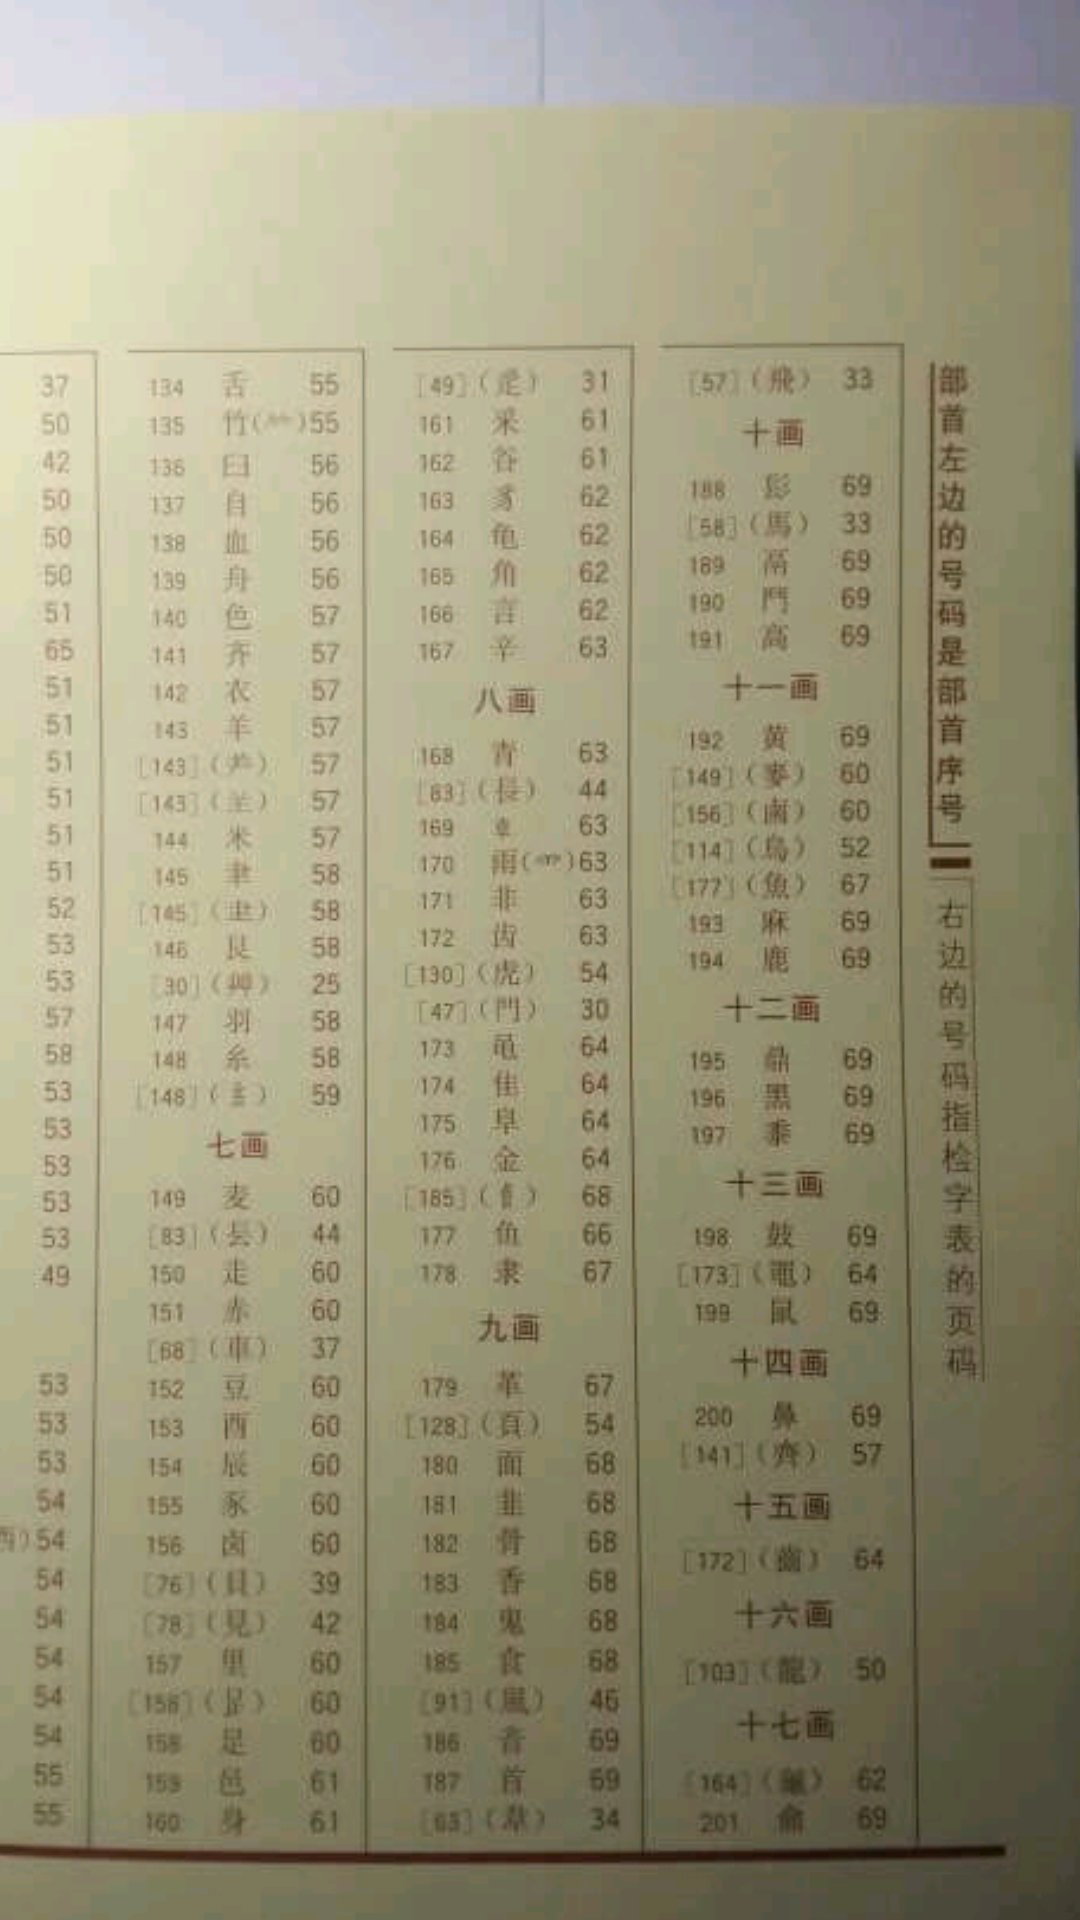 37
50
42
50
50
50
51
65
51
51
51
51
51
51
52
53
53
57
58
53
53
53
53
53
49
53
53
53
54
54
54
54
54
54
54
55
55
134 舌 55
135 竹(⺮)55
136 臼 56
137 自 56
138 血 56
139 舟 56
140 色 57
141 齐 57
142 衣 57
143 羊 57
[143](⺶) 57
[143](⺷) 57
144 米 57
145 聿 58
[145](⺻) 58
146 艮 58
[30](艸) 25
147 羽 58
148 糸 58
[148](糹) 59
七画
149 麦 60
[83](镸) 44
150 走 60
151 赤 60
[68](車) 37
152 豆 60
153 酉 60
154 辰 60
155 豕 60
156 卤 60
[76](貝) 39
[78](見) 42
157 里 60
[158](⻊) 60
158 足 60
159 邑 61
160 身 61
[49](辵) 31
161 釆 61
162 谷 61
163 豸 62
164 龟 62
165 角 62
166 言 62
167 辛 63
八画
168 青 63
[83](長) 44
169 龺 63
170 雨(⻗)63
171 非 63
172 齿 63
[130](虎) 54
[47](門) 30
173 黾 64
174 隹 64
175 阜 64
176 金 64
[185](飠) 68
177 鱼 66
178 隶 67
九画
179 革 67
[128](頁) 54
180 面 68
181 韭 68
182 骨 68
183 香 68
184 鬼 68
185 食 68
[91](風) 46
186 音 69
187 首 69
[63](韋) 34
[57](飛) 33
十画
188 髟 69
[58](馬) 33
189 鬲 69
190 鬥 69
191 高 69
十一画
192 黄 69
[149](麥) 60
[156](鹵) 60
[114](鳥) 52
[177](魚) 67
193 麻 69
194 鹿 69
十二画
195 鼎 69
196 黑 69
197 黍 69
十三画
198 鼓 69
[173](黽) 64
199 鼠 69
十四画
200 鼻 69
[141](齊) 57
十五画
[172](齒) 64
十六画
[103](龍) 50
十七画
[164](龜) 62
201 龠 69
部首左边的号码是部首序号
右边的号码指检字表的页码